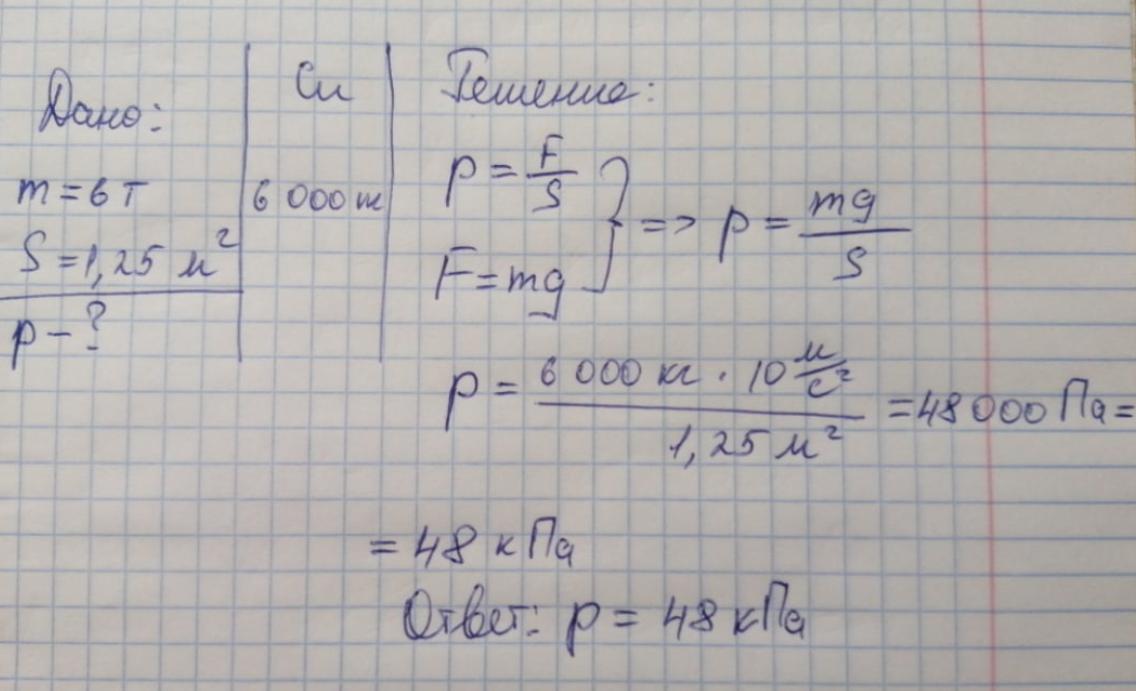 Дано:
m = 6 т
S = 1,25 м²
p – ?
Си
6 000 кг
Решение:
p = F/S
F = mg
} => p = mg/S
p = 6 000 кг · 10 м/с² / 1,25 м² = 48 000 Па =
= 48 кПа
Ответ: p = 48 кПа